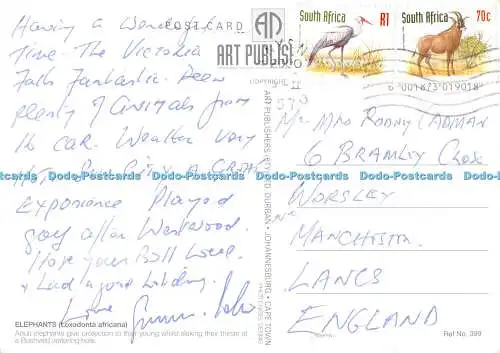 Having a wonderful
Time. The Victoria
Falls Fantastic. Been
plenty of animals from
the car. Weather very
Hot. Sun City a Great
Experience Played
golf after Westwood.
Hope your Ball Went
+ had a good holiday.
Love
ELEPHANTS (Loxodonta africana)
Adult elephants give protection to their young whilst slaking their thirst at
a Bushveld watering hole.
POST CARD
ART PUBLISHERS
COPYRIGHT
ART PUBLISHERS DURBAN • JOHANNESBURG • CAPE TOWN
South Africa R1
South Africa 70c
6 001873 019018
Mr Mrs Rodny Cadman
6 Bramley Close
Worsley
Manchester
Lancs
England
Ref No. 399
Dodo-Postcards Dodo-Postcards Dodo-Postcards Dodo-Postcards